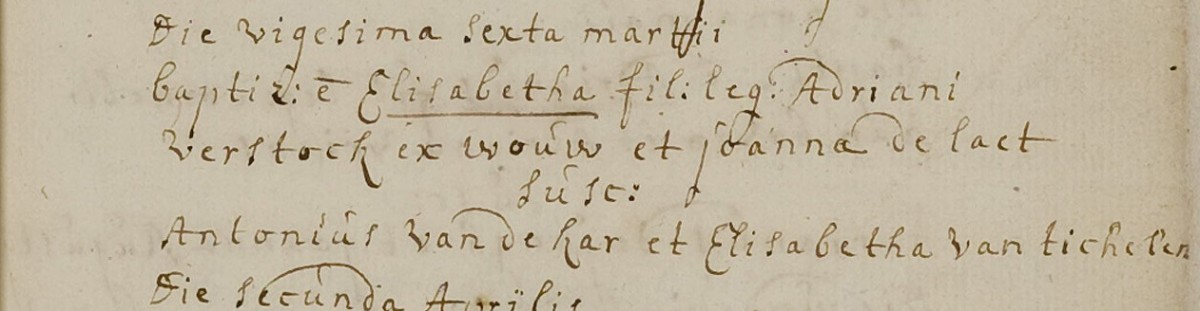 Die vigesima sexta martii
baptiz: ē Elisabetha fil: leg: Adriani
Verstock ex wouw et joannæ de laet
susc:
Antonius Van de kar et Elisabetha Van tichelen
Die secunda Aprilis